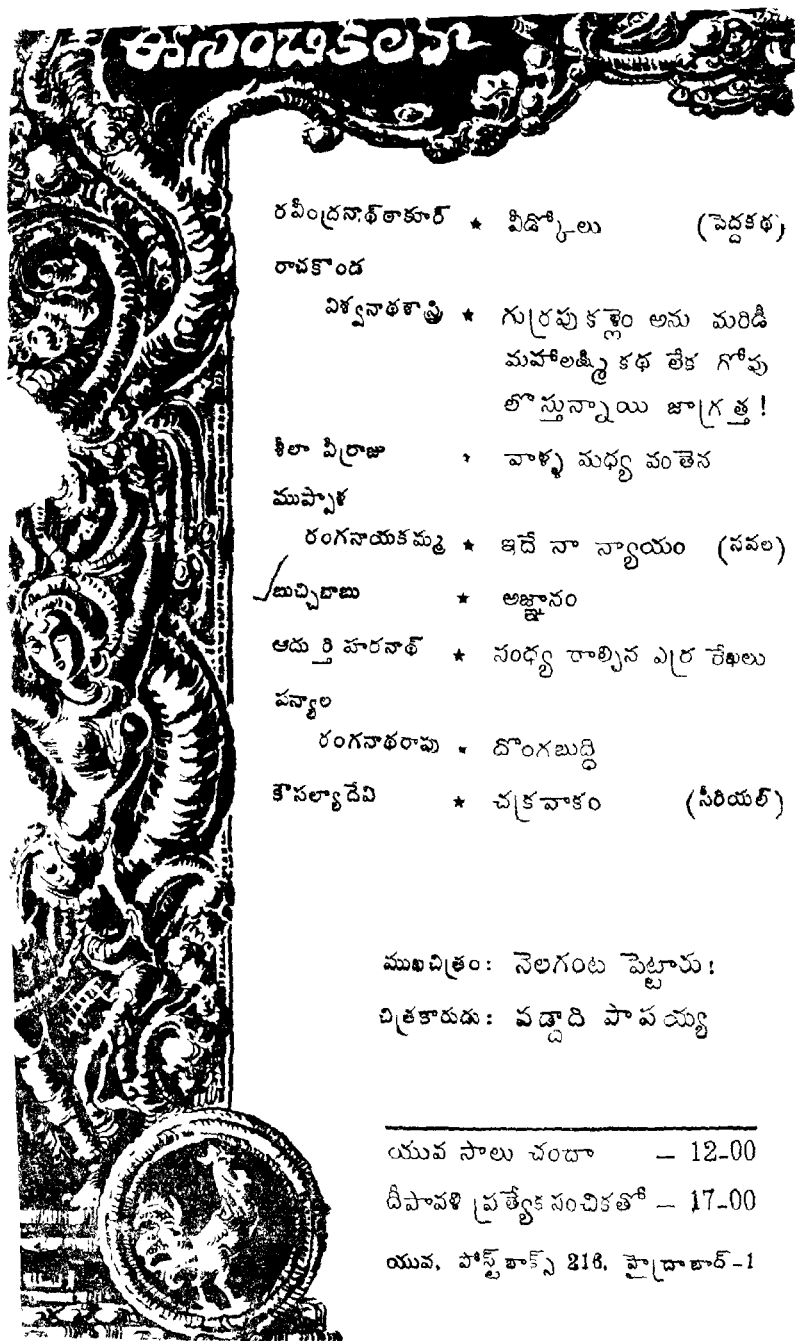 ఈసంచికలో
రవీంద్రనాథ్ ఠాకూర్ ★ వీడ్కోలు (పెద్దకథ)
రాచకొండ
విశ్వనాథశాస్త్రి ★ గుర్రపు కళ్లెం అను మరిడి
మహాలక్ష్మి కథ లేక గోవు
లొస్తున్నాయి జాగ్రత్త!
శీలా వీర్రాజు ★ వాళ్ళ మధ్య వంతెన
ముప్పాళ
రంగనాయకమ్మ ★ ఇదే నా న్యాయం (నవల)
బుచ్చిబాబు ★ అజ్ఞానం
ఆదుర్తి హరనాథ్ ★ సంధ్య రాల్చిన ఎర్ర రేఖలు
పన్యాల
రంగనాథరావు ★ దొంగబుద్ధి
కౌసల్యాదేవి ★ చక్రవాకం (సీరియల్)
ముఖచిత్రం: నెలగంట పెట్టారు!
చిత్రకారుడు: వడ్డాది పాపయ్య
యువ సాలు చందా – 12-00
దీపావళి ప్రత్యేక సంచికతో – 17-00
యువ, పోస్ట్ బాక్స్ 216, హైద్రాబాద్-1